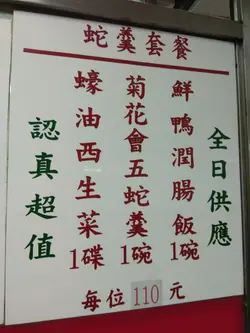 蛇羹套餐
全日供應
鮮鴨潤腸飯1碗
菊花會五蛇羹1碗
蠔油西生菜1碟
認真超值
每位110元